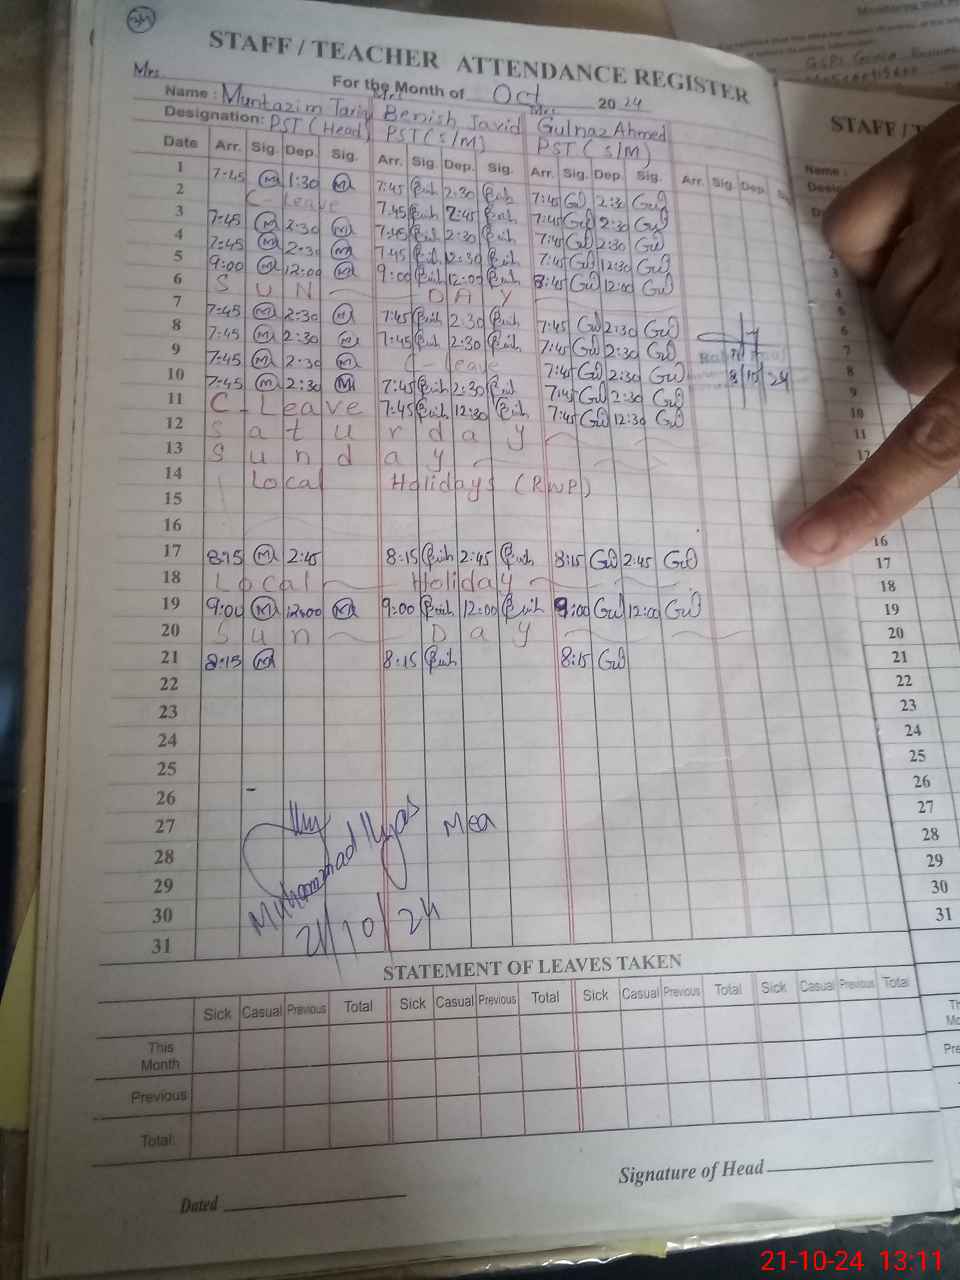 STAFF / TEACHER ATTENDANCE REGISTER
For the Month of Oct 2024
Mrs. Mrs. Mrs.
Name : Muntazim Tariq Benish Javid Gulnaz Ahmed
Designation: PST (Head) PST (S/M) PST (S/M)
Date Arr. Sig. Dep. Sig. Arr. Sig. Dep. Sig. Arr. Sig. Dep. Sig. Arr. Sig. Dep.
1 7:45 M 1:30 M 7:45 2:30 7:45 Gul 2:30 Gul
2 C-Leave 7:45 2:45 7:45 Gul 2:30 Gul
3 7:45 M 2:30 M 7:45 2:30 7:45 Gul 2:30 Gul
4 7:45 M 2:30 M 7:45 12:30 7:45 Gul 12:30 Gul
5 9:00 M 12:00 M 9:00 12:00 8:45 Gul 12:00 Gul
6 SUN DAY
7 7:45 M 2:30 M 7:45 2:30 7:45 Gul 2:30 Gul
8 7:45 M 2:30 M 7:45 2:30 7:45 Gul 2:30 Gul
9 7:45 M 2:30 M C-Leave 7:45 Gul 2:30 Gul
10 7:45 M 2:30 M 7:45 2:30 7:45 Gul 2:30 Gul
11 C-Leave 7:45 12:30 7:45 Gul 12:30 Gul
8/10/24
12 Saturday
13 Sunday
14 Local Holidays (RWP)
15
16
17 8:15 M 2:45 8:15 2:45 8:15 Gul 2:45 Gul
18 Local Holiday
19 9:00 M 12:00 M 9:00 12:00 9:00 Gul 12:00 Gul
20 Sun Day
21 8:15 M 8:15 8:15 Gul
22
23
24
25
26
27
28
29
30
31
Muhammad Ilyas Mea
21/10/24
STATEMENT OF LEAVES TAKEN
Sick Casual Previous Total Sick Casual Previous Total Sick Casual Previous Total Sick Casual Previous Total
This Month
Previous
Total:
Signature of Head
Dated
STAFF / T
Name :
6
7
8
9
10
11
16
17
18
19
20
21
22
23
24
25
26
27
28
29
30
31
21-10-24 13:11